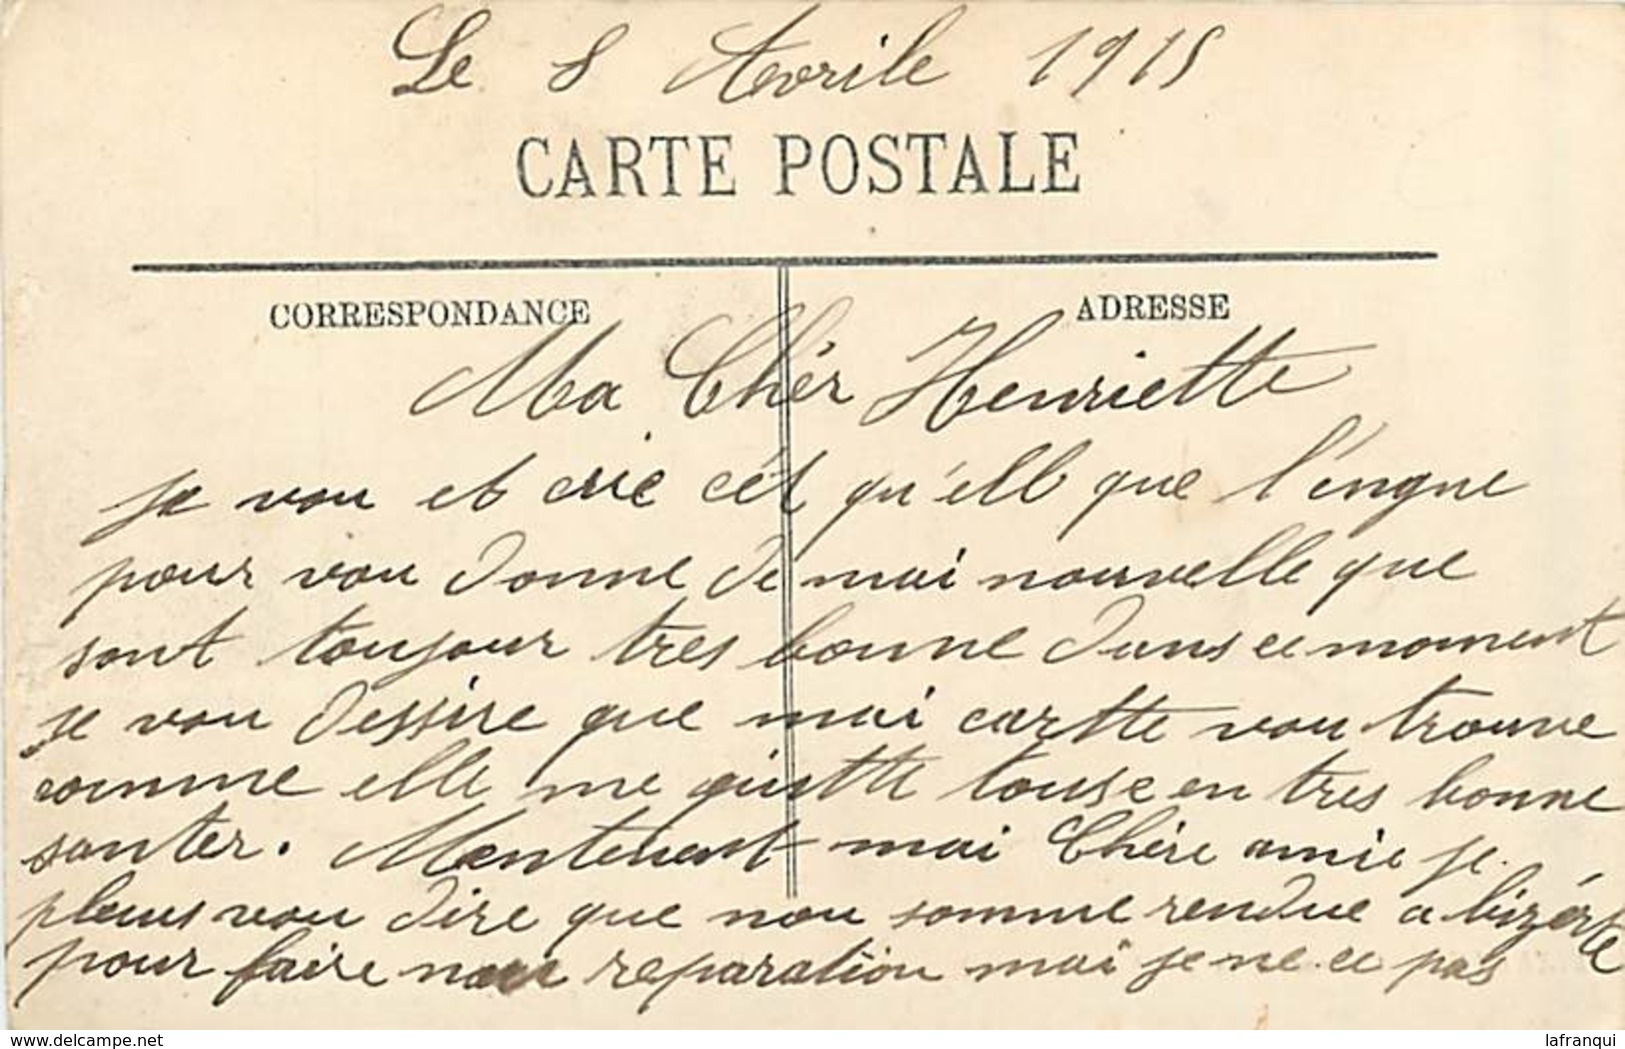 Le 8 Avrile 1915
CARTE POSTALE
CORRESPONDANCE
ADRESSE
Ma Chér Henriette
je vou et crie cét qu'ell que l'engne
pour vou donne de mai nouvelle que
sont toujour tres bonne dans ce moment
je vou dessire que mai cartte vou trouve
comme elle me quistte touse en tres bonne
santer. Mentenant mai Chére amie je
pleus vou dire que nou somme rendue a bizérte
pour faire nou reparation mai je ne ce pas
www.delcampe.net
lafranqui